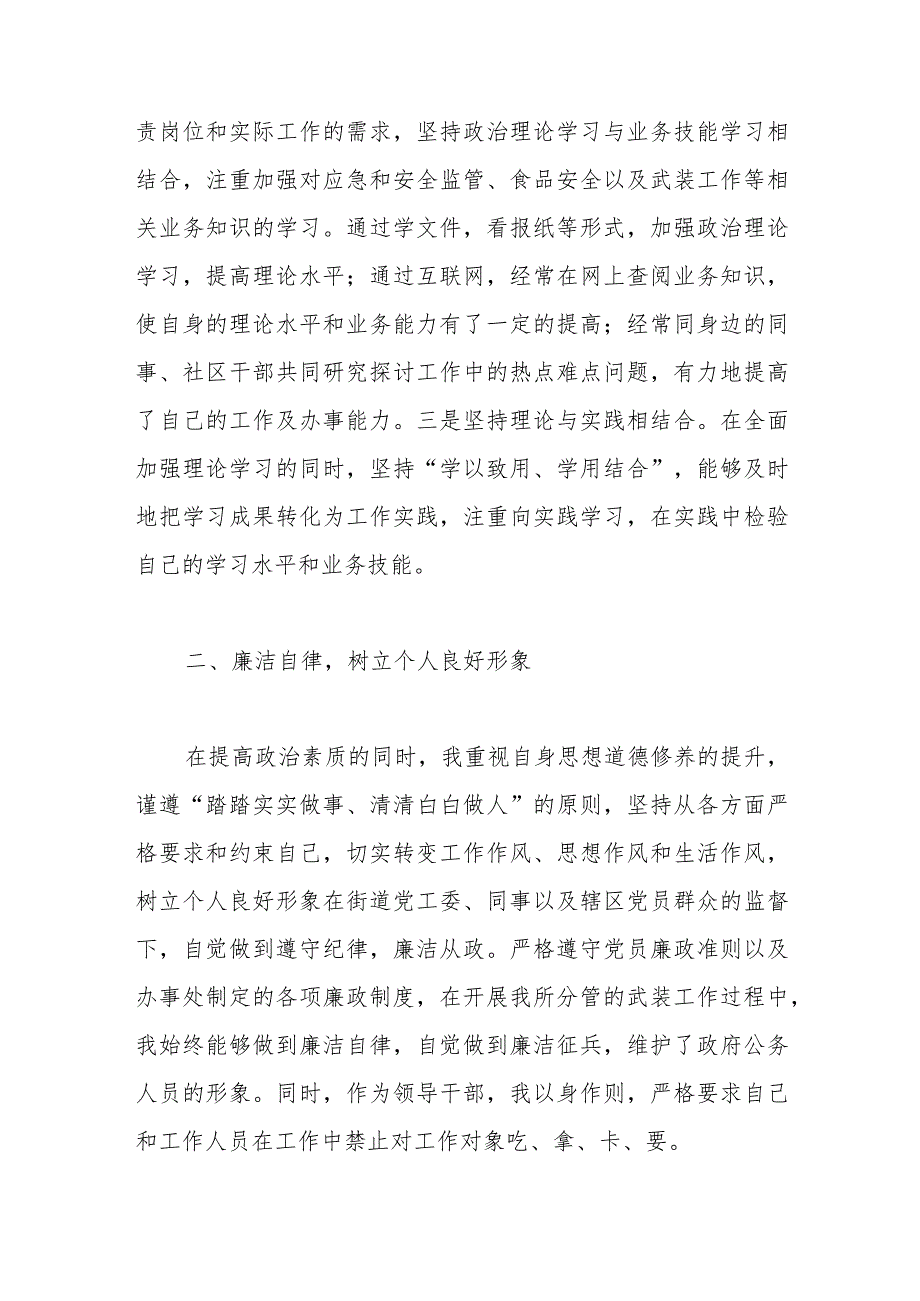 责岗位和实际工作的需求，坚持政治理论学习与业务技能学习相
结合，注重加强对应急和安全监管、食品安全以及武装工作等相
关业务知识的学习。通过学文件，看报纸等形式，加强政治理论
学习，提高理论水平；通过互联网，经常在网上查阅业务知识，
使自身的理论水平和业务能力有了一定的提高；经常同身边的同
事、社区干部共同研究探讨工作中的热点难点问题，有力地提高
了自己的工作及办事能力。三是坚持理论与实践相结合。在全面
加强理论学习的同时，坚持“学以致用、学用结合”，能够及时
地把学习成果转化为工作实践，注重向实践学习，在实践中检验
自己的学习水平和业务技能。
二、廉洁自律，树立个人良好形象
在提高政治素质的同时，我重视自身思想道德修养的提升，
谨遵“踏踏实实做事、清清白白做人”的原则，坚持从各方面严
格要求和约束自己，切实转变工作作风、思想作风和生活作风，
树立个人良好形象在街道党工委、同事以及辖区党员群众的监督
下，自觉做到遵守纪律，廉洁从政。严格遵守党员廉政准则以及
办事处制定的各项廉政制度，在开展我所分管的武装工作过程中，
我始终能够做到廉洁自律，自觉做到廉洁征兵，维护了政府公务
人员的形象。同时，作为领导干部，我以身作则，严格要求自己
和工作人员在工作中禁止对工作对象吃、拿、卡、要。